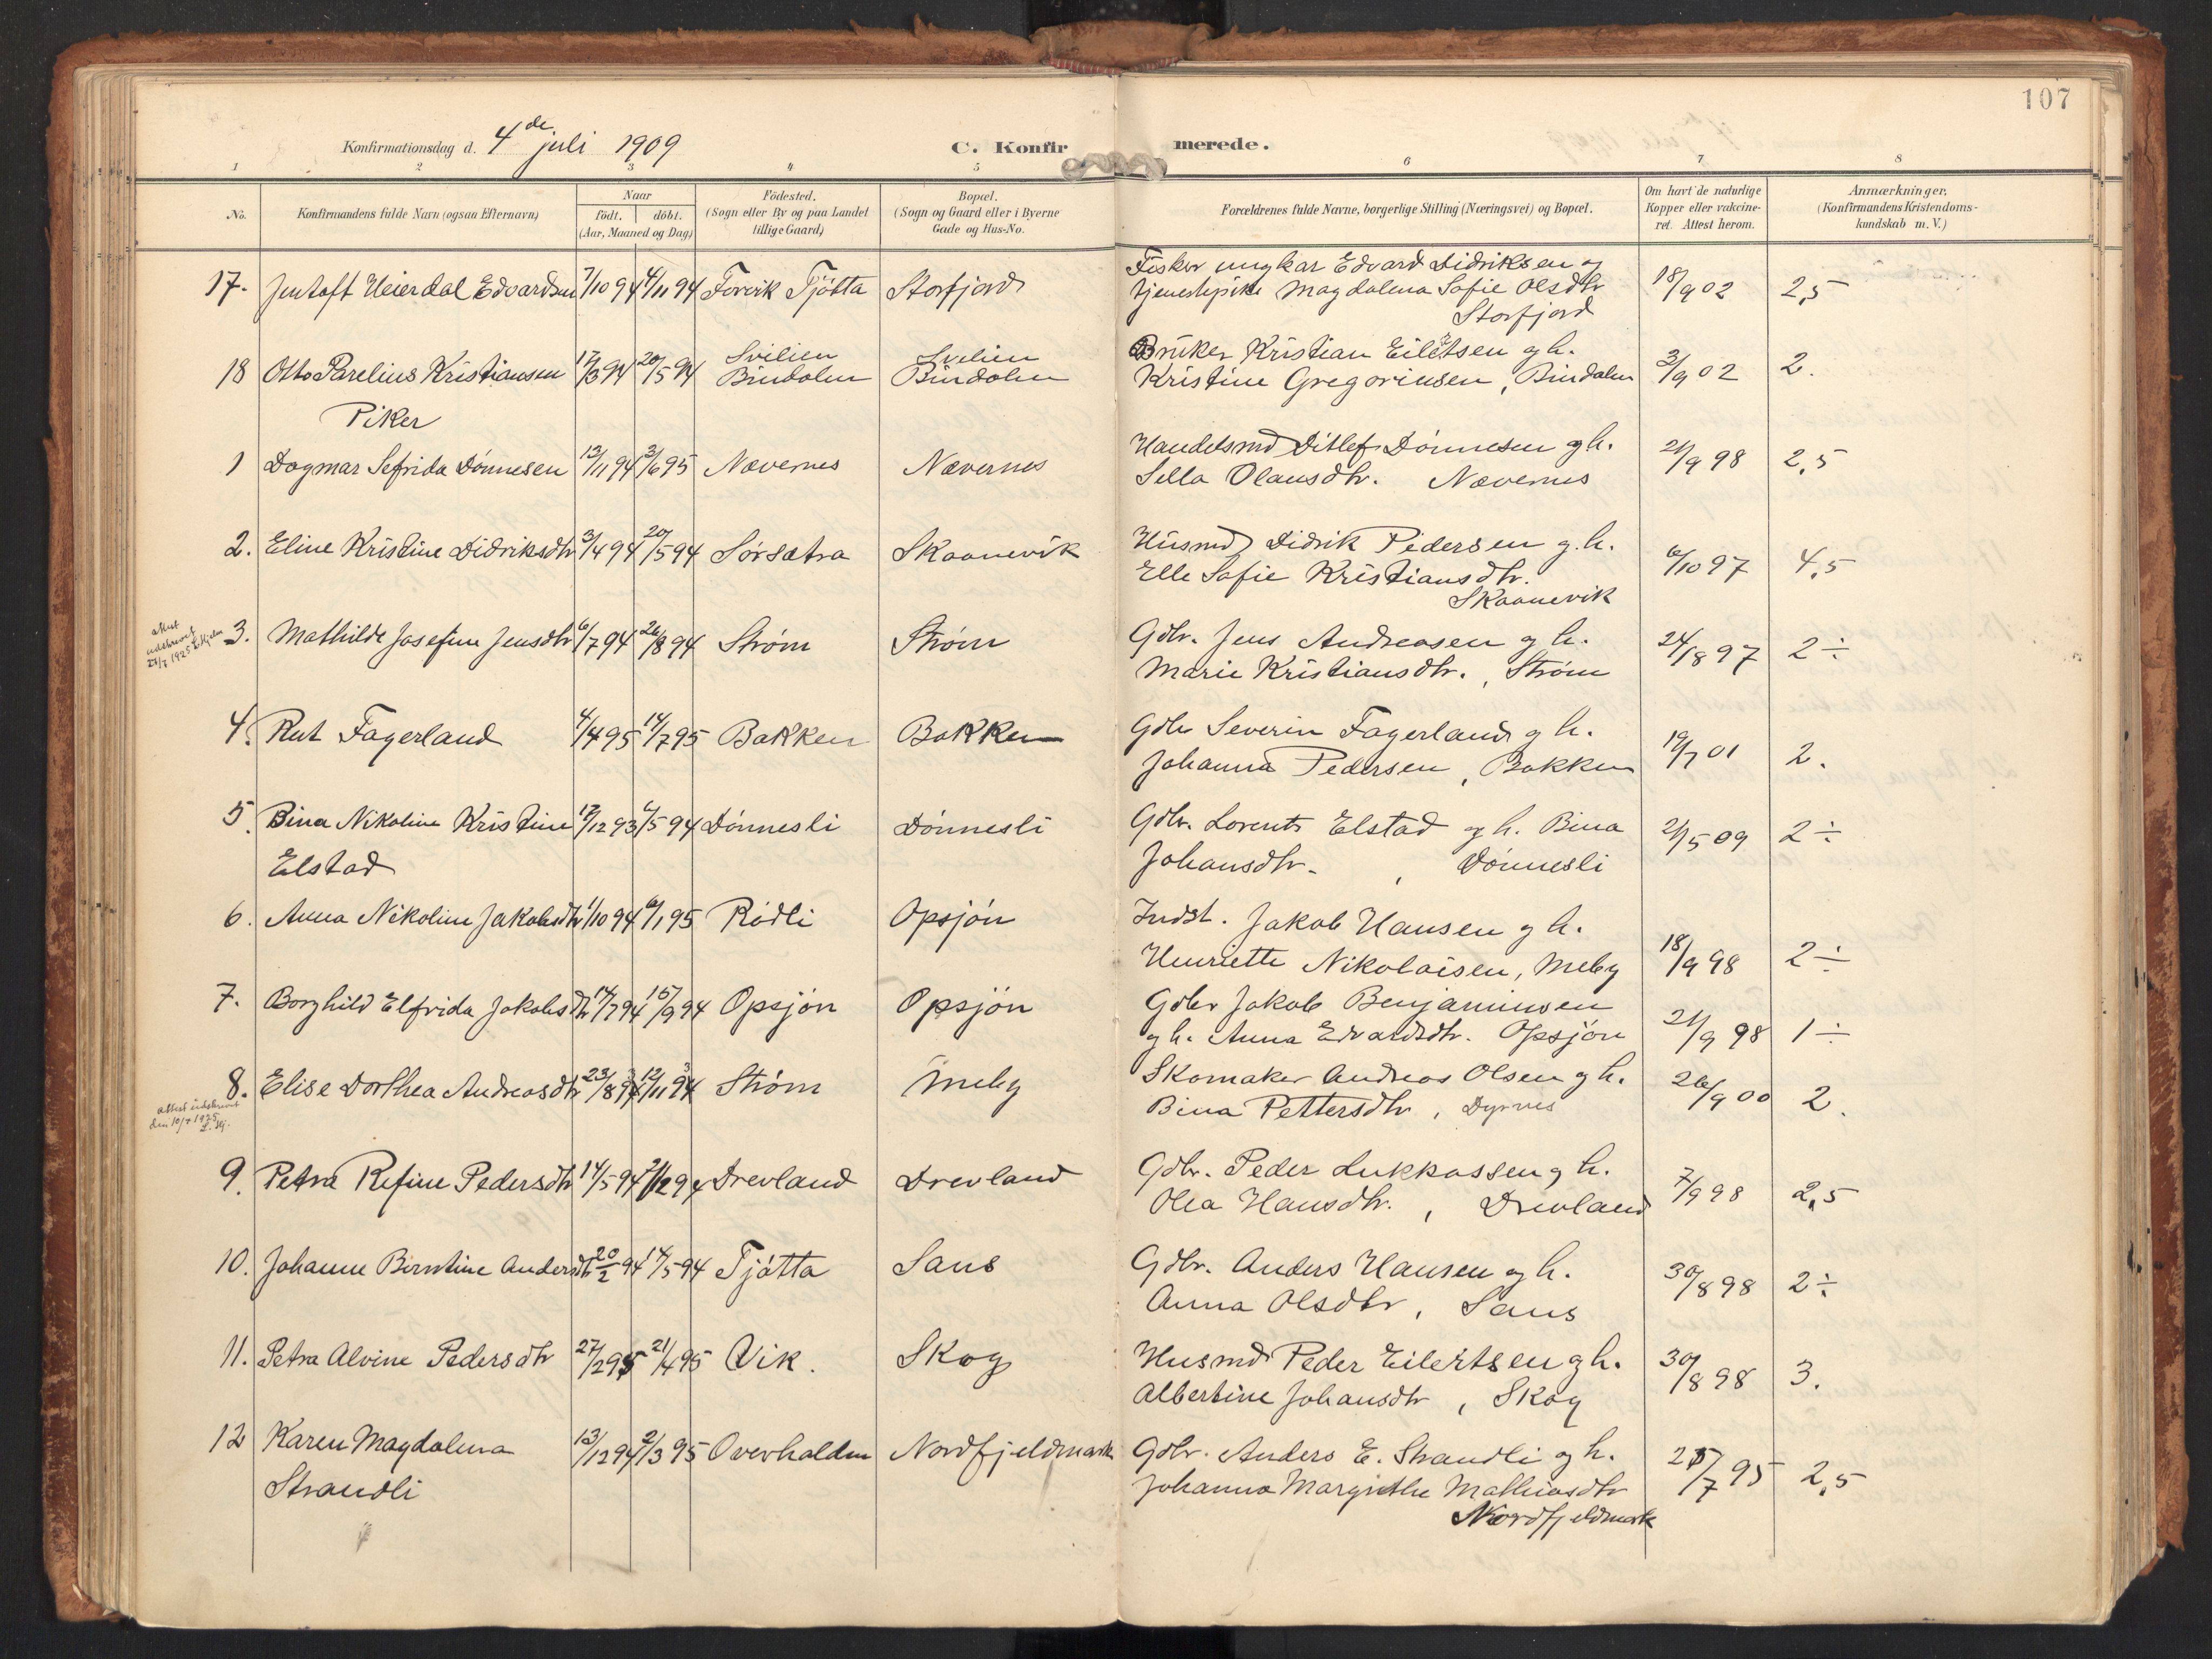 107
Konfirmationsdag d. 4de juli 1909
C. Konfirmerede.
1 2 3 4 5 6 7 8
No.
Konfirmandens fulde Navn (ogsaa Efternavn)
Naar
födt. döbt.
(Aar, Maaned og Dag)
Födested.
(Sogn eller By og paa Landet
tillige Gaard)
Bopæl.
(Sogn og Gaard eller i Byerne
Gade og Hus-No.
Forældrenes fulde Navne, borgerlige Stilling (Næringsvei) og Bopæl.
Om havt de naturlige
Kopper eller vakcine-
ret. Attest herom.
Anmærkninger,
(Konfirmandens Kristendoms-
kundskab m. V.)
17. Jentoft Heierdal Edvardsen 7/10 94 4/11 94 Forvik Tjøtta Storfjord
Fisker ungkar Edvard Didriksen og
tjenestepike Magdalena Sofie Olsdtr
Storfjord
18/9 02 2,5
18 Otto Parelius Kristiansen 17/3 94 20/5 94 Svilien Bindalen Svilien Bindalen
Bruker Kristian Eilertsen g h.
Kristine Gregoriusen, Bindalen
3/9 02 2.
Piker
1 Dagmar Sefrida Dønnesen 13/11 94 3/6 95 Nævernes Nævernes
Handelsmd Ditlef Dønnesen g h.
Sella Olausdtr. Nævernes
21/9 98 2,5
2. Eline Kristine Didriksdtr 3/4 94 20/5 94 Sørsætra Skaanevik
Husmd Didrik Pedersen g. h.
Elle Sofie Kristiansdtr.
Skaanevik
6/10 97 4,5
3. Mathilde Josefine Jensdtr 6/7 94 26/8 94 Strøm Strøm
Gdbr. Jens Andreasen g h.
Marie Kristiansdtr., Strøm
24/8 97 2 ÷
4. Rut Fagerland 4/4 95 14/7 95 Bakken Bakken
Gdbr Severin Fagerland g h.
Johanna Pedersen, Bakken
19/7 01 2.
5. Bina Nikoline Kristine 17/12 93 6/5 94 Dønnesli Dønnesli
Elstad
Gdbr. Lorents Elstad g h. Bina
Johansdtr. , Dønnesli
2/5 09 2 ÷
6. Anna Nikoline Jakobsdtr 1/10 94 6/1 95 Rødli Opsjøn
Indst. Jakob Hansen g h.
Henriette Nikolaisen, Meby
18/9 98 2 ÷
7. Borghild Elfrida Jakobsdtr 14/7 94 16/9 94 Opsjøn Opsjøn
Gdbr Jakob Benjaminsen
g h. Anna Edvardsdtr. Opsjøn
21/9 98 1 ÷
8. Elise Dorthea Andreasdtr 23/8 93 12/11 93 Strøm Meby
attest udskrevet
den 10/7 1925
Skomaker Andreas Olsen g h.
Bina Pettersdtr, Dyrnes
26/9 00 2.
9. Petra Refine Pedersdtr 14/5 94 2/12 94 Drevland Drevland
Gdbr. Peder Lukkassen g h.
Olea Hansdtr. , Drevland
7/9 98 2,5
10. Johanne Berntine Andersdtr 20/2 94 14/5 94 Tjøtta Saus
Gdbr. Anders Hansen g h.
Anna Olsdtr, Saus
30/8 98 2 ÷
11. Petra Alvine Pedersdtr 27/2 95 21/4 95 Vik. Skog
Husmd Peder Eilertsen g h.
Albertine Johansdtr, Skog
30/8 98 3.
12 Karen Magdalena 13/12 94 2/3 95 Overhalden Nordfjeldmark
Strandli
Gdbr. Anders E. Strandli og h.
Johanna Margrethe Mathiasdtr
Nordfjeldmark
/7 95 2,5